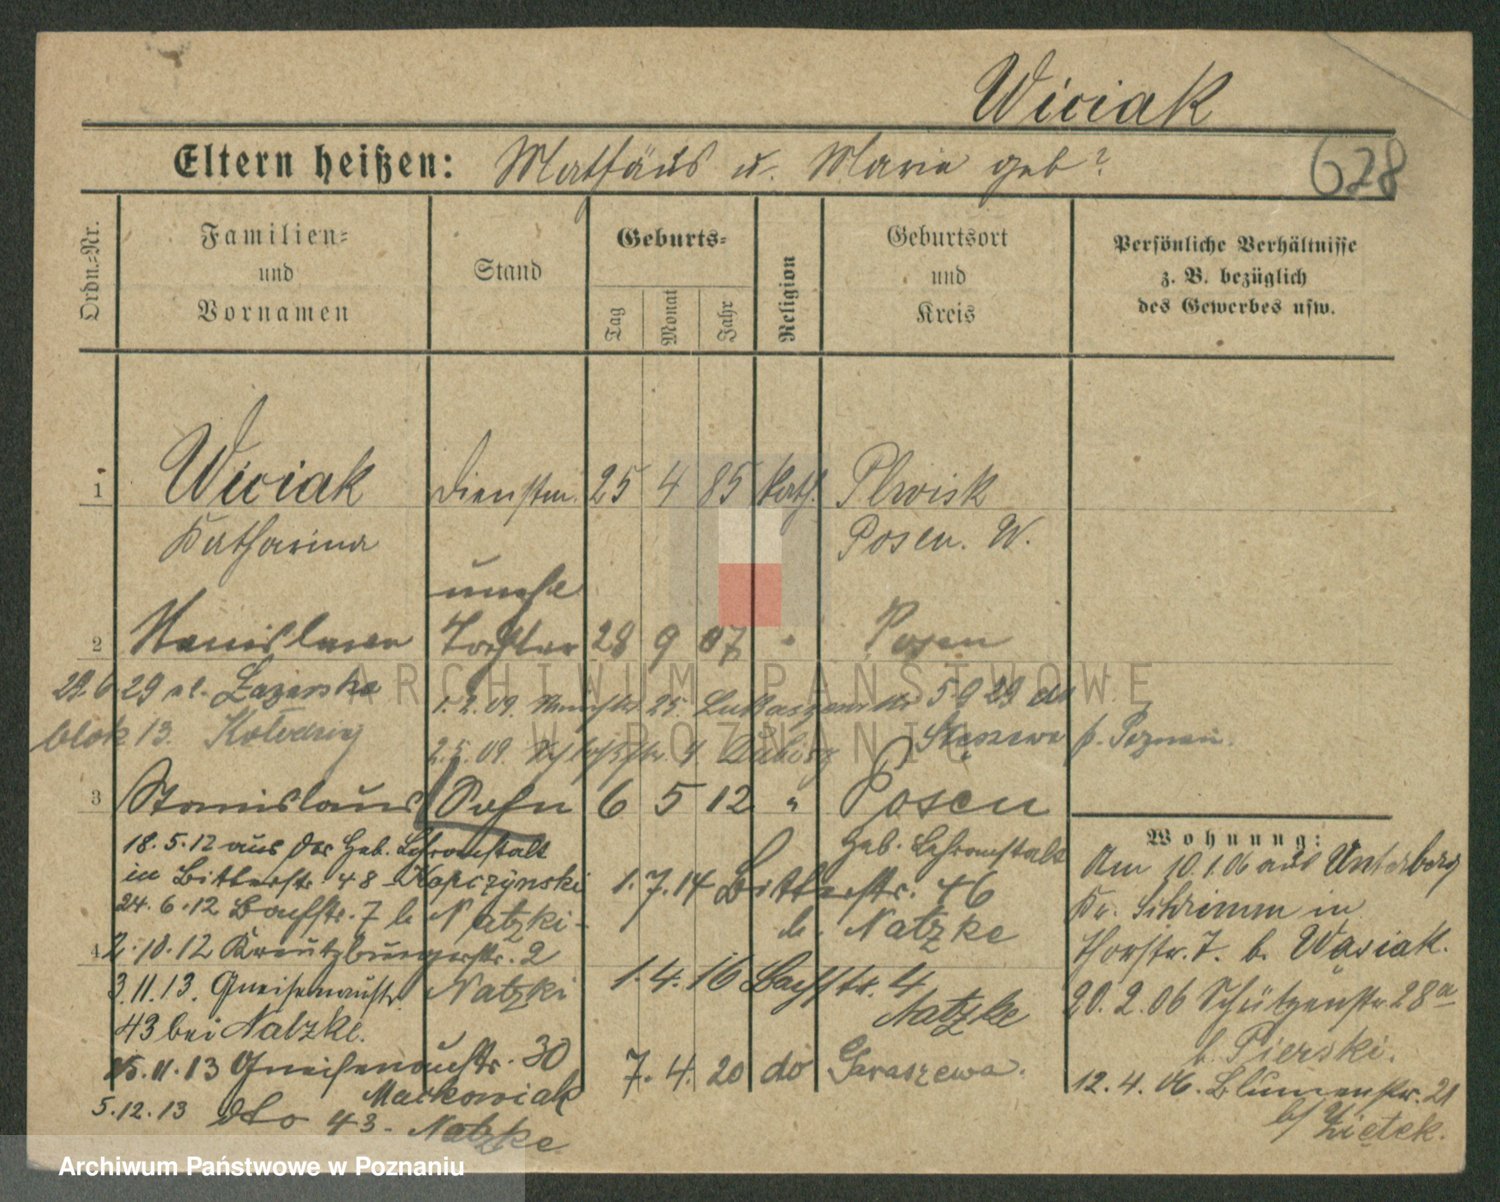 Wiciak
Eltern heißen: Mathäus u. Marie geb?
678
Ordn.-Nr.
Familien-
und
Vornamen
Stand
Geburts-
Tag
Monat
Jahr
Religion
Geburtsort
und
Kreis
Persönliche Verhältnisse
z. B. bezüglich
des Gewerbes usw.
1 Wiciak Dienstm. 25 4 85 kath. Plewisk
Katharina Posen. W.
unehl
2 Stanislawa Tochter 28 9 07 " Posen
29.6.29 ul. Łazarska
1.2.09. 25 5.9.29 do
blok 13.
2.5.09. 4 Stęszewo p. Poznań.
3 Stanislaus Sohn 6 5 12 " Posen
18.5.12 aus der Heb. Lehranstalt
in Bitterstr. 48 Kopczynski
24.6.12 Bachstr. 7 b. Natzki-
4 2.10.12 Kreutzburgerstr. 2
Natzki
3.11.13. Gneisenaustr.
43 bei Natzke.
15.11.13 Gneisenaustr. 30
Maćkowiak
5.12.13 dto 43. Natzke
Heb. Lehranstalt
1.7.14 Bitterstr. 46
b. Natzke
1.4.16 Bachstr. 4
Natzke
7.4.20 do Garaszewa.
Wohnung:
Am 10.1.06 aus Unterberg
Kr. Schrimm in
Horstr. 7. b. Wasiak.
20.2.06 Schützenstr. 28a
b. Pierski.
12.4.06. Blumenstr. 21
b/ Ziętek.
ARCHIWUM PAŃSTWOWE
W POZNANIU
Archiwum Państwowe w Poznaniu